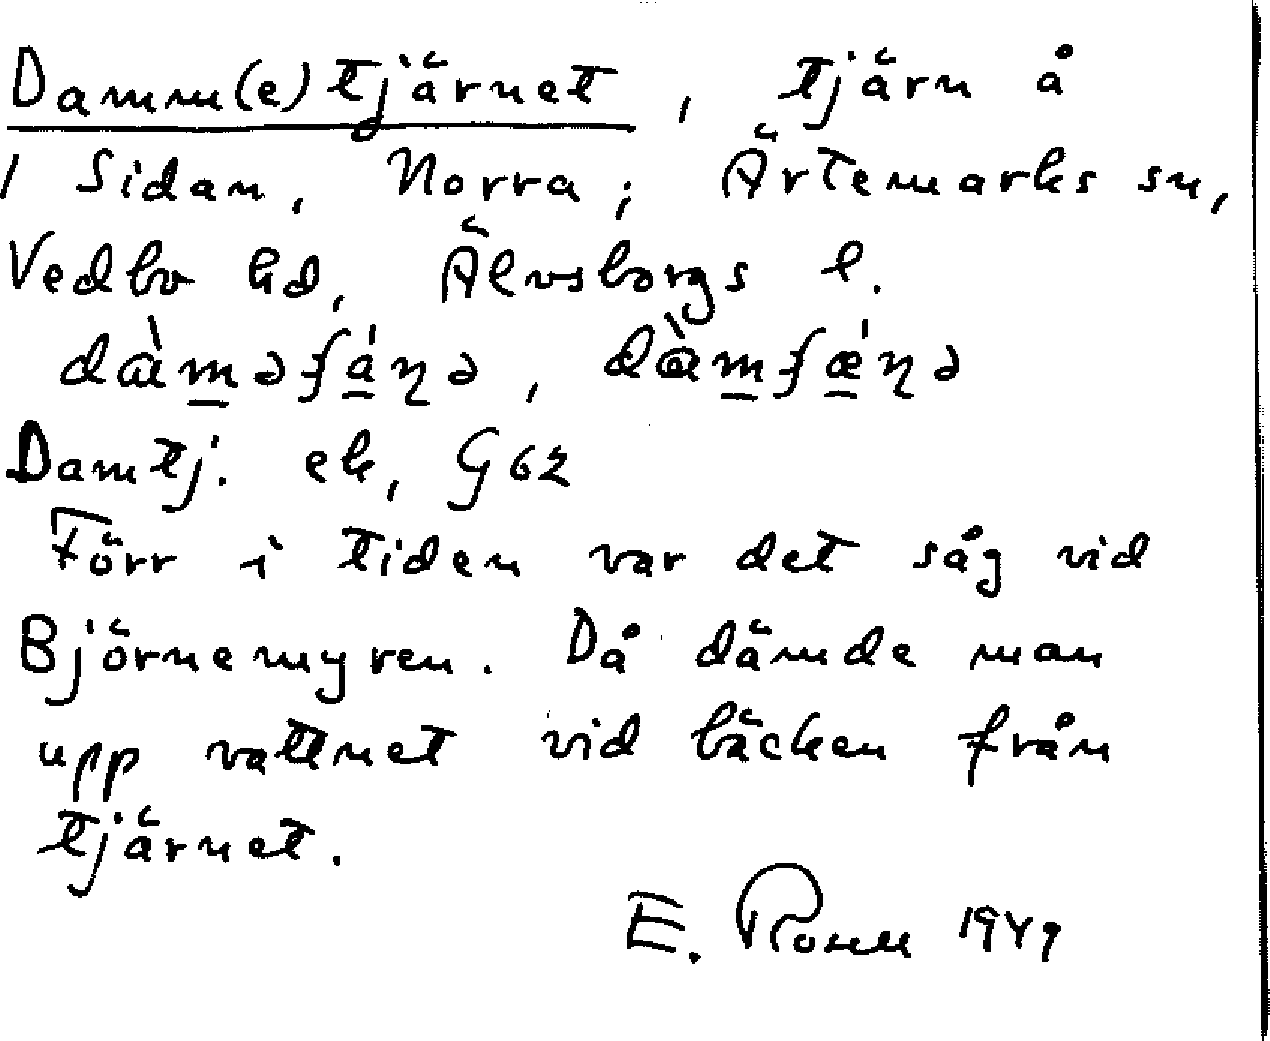 Damm(e)tjärnet, tjärn å
1 Sidan, Norra; Ärtemarks sn,
Vedbo hd, Älvsborgs l.
dàməʃánə, dàmʃǽnə
Damtj. ek, G62
Förr i tiden var det såg vid
Björnemyren. Då dämde man
upp vattnet vid bäcken från
tjärnet.
E. Ronn 1949